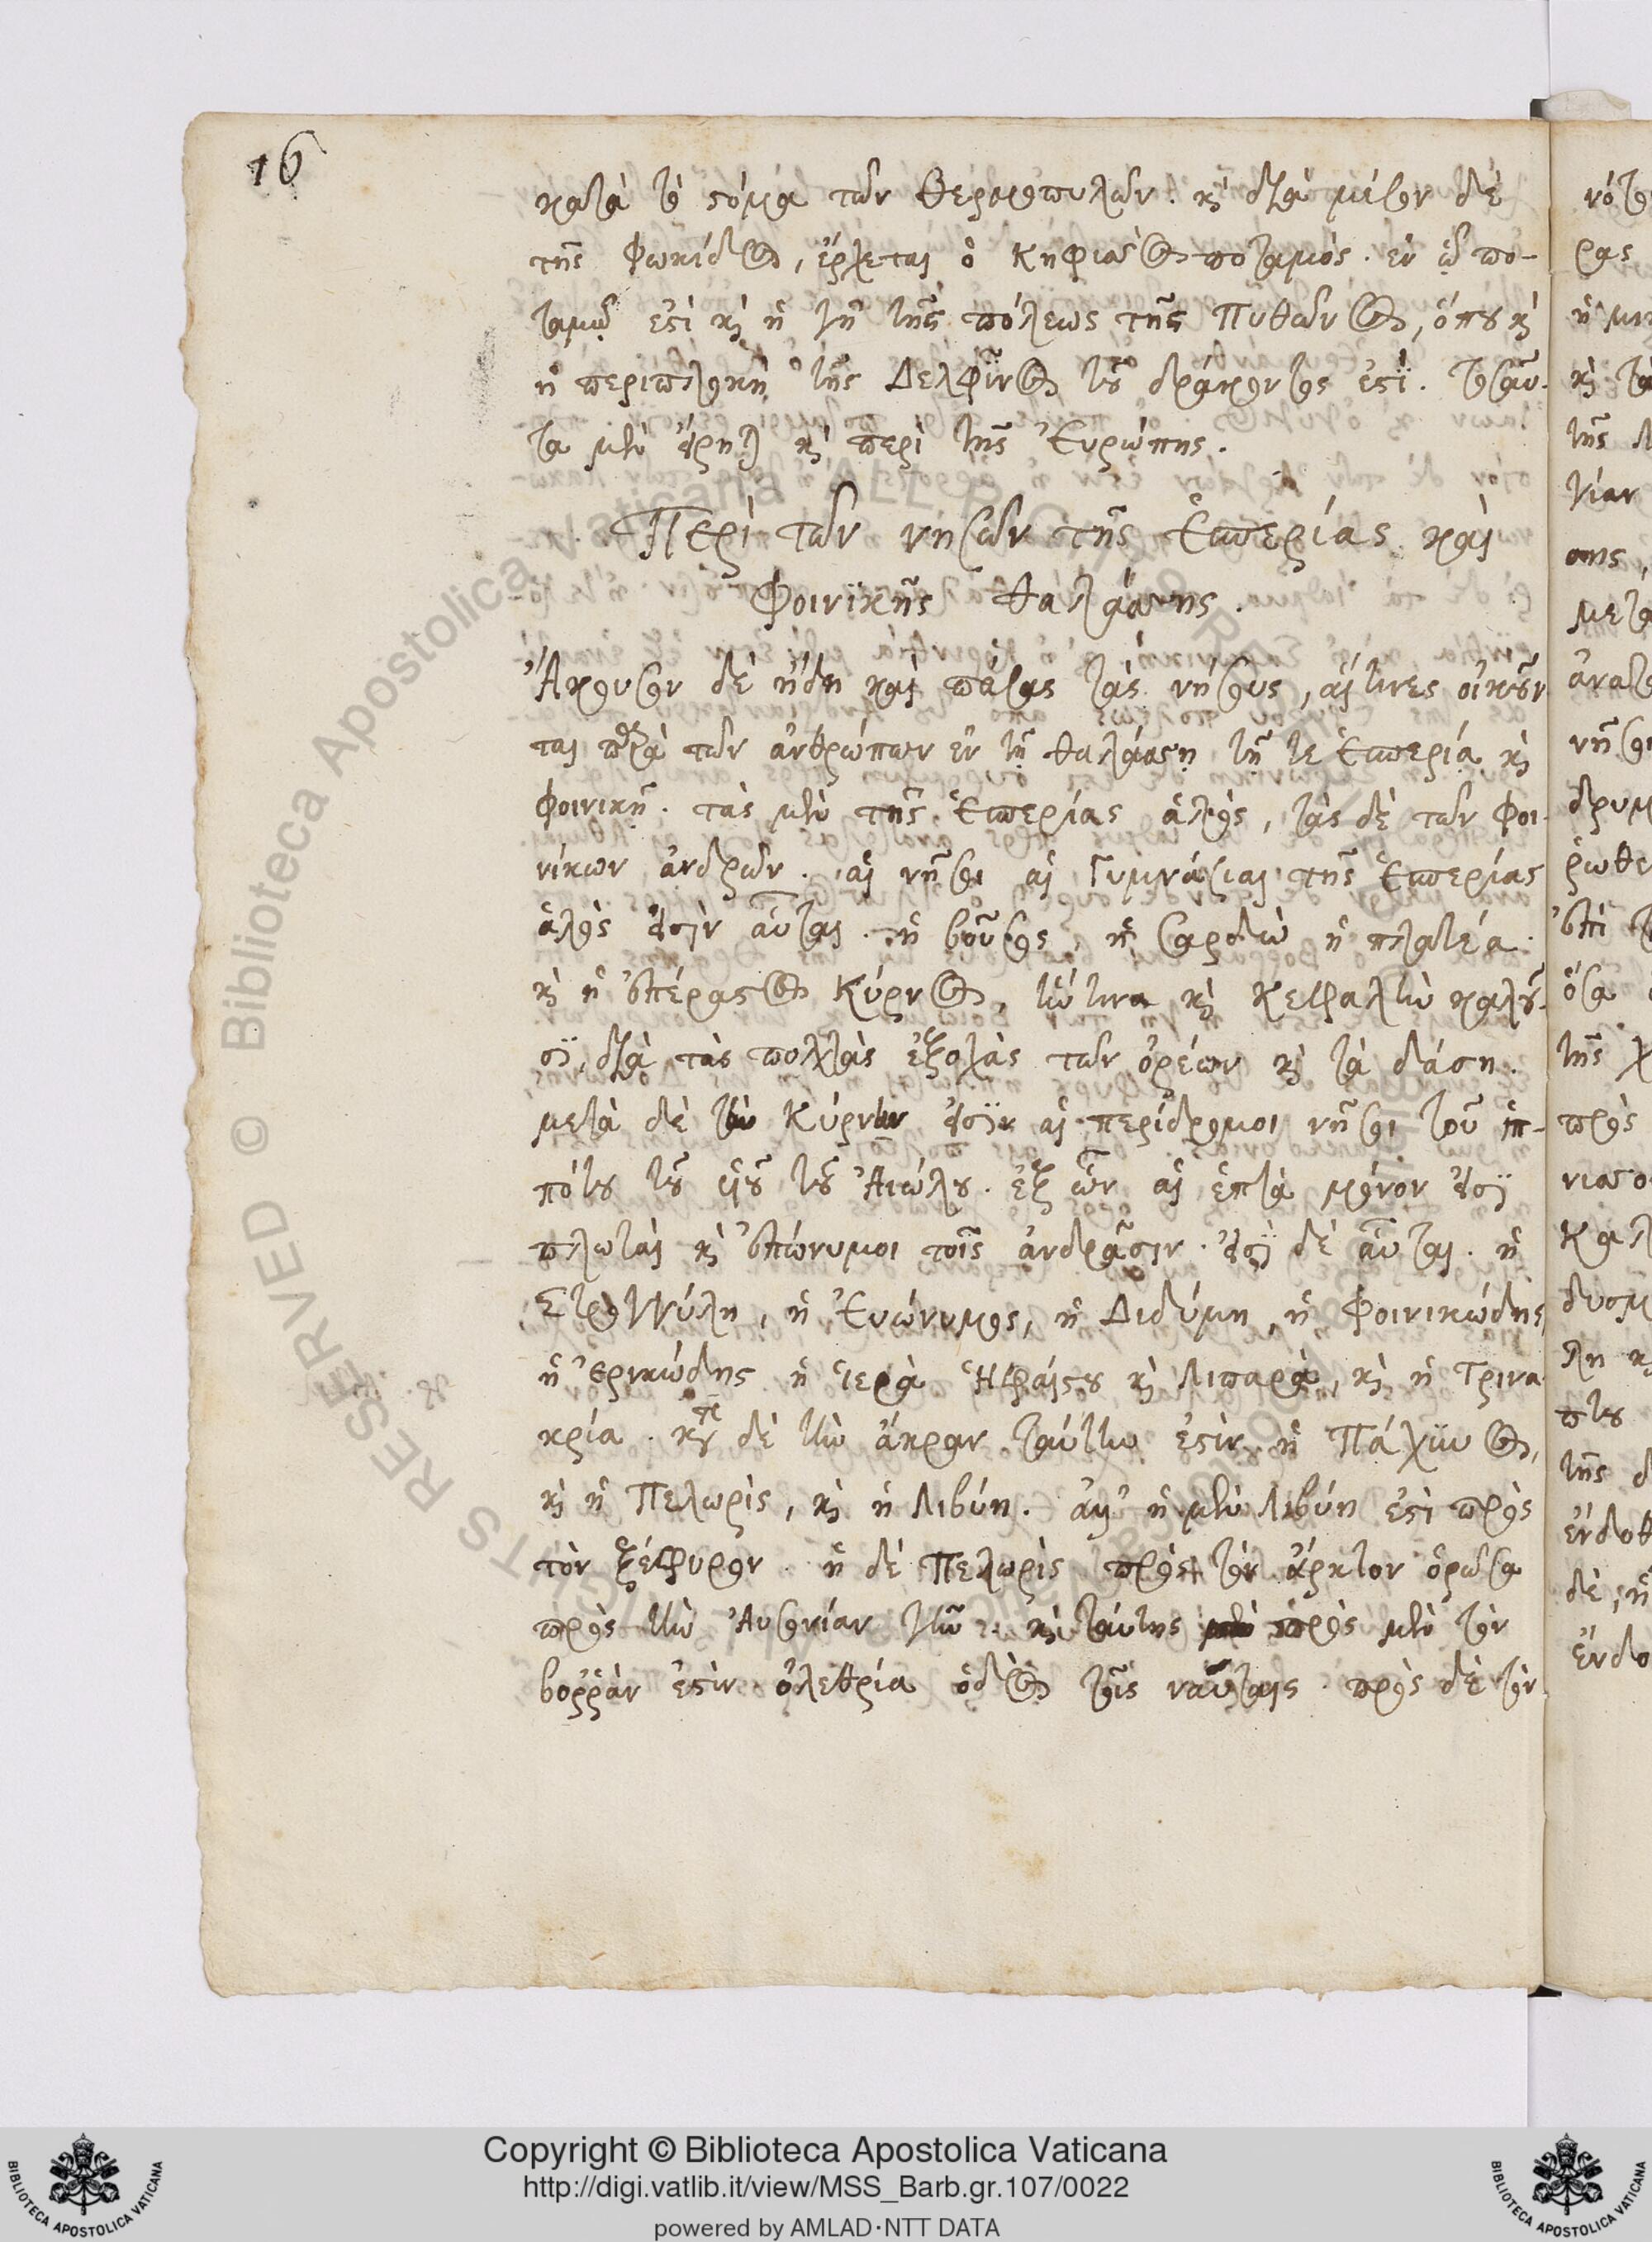 16
κατὰ τὸ στόμα τῶν Θερμοπυλῶν. κỳ διὰ μέσον δὲ
τῆς Φωκίδος, ἔρχεται ὁ Κηφισσὸς ποταμὸς. ἐν ᾧ πο-
ταμῷ ἐστὶ κỳ ἡ γῆ τῆς πόλεως τῆς Πυθῶνος, ὅπου κỳ
ἡ περιπλοκὴ τῆς Δελφῖνος τοῦ δράκοντος ἐστὶ. τοσαῦ-
τα μὲν εἴρηται κỳ περὶ τῆς Εὐρώπης.
Περὶ τῶν νήσων τῆς Ἑσπερίας καὶ
Φοινικῆς θαλάσσης.
Ἄκουσον δὲ ἤδη καὶ πάσας τὰς νήσους, αἵτινες οἰκοῦν
ται παρὰ τῶν ἀνθρώπων ἐν τῇ θαλάσσῃ τῇ τε Ἑσπερίᾳ κỳ
Φοινικῇ. τὰς μὲν τῆς Ἑσπερίας ἁλὸς, τὰς δὲ τῶν Φοι-
νίκων ἀνδρῶν. αἱ νῆσοι αἱ Γυμνάσιαι τῆς Ἑσπερίας
ἁλὸς εἰσὶν αὗται. ἡ βοῦσος, ἡ Σαρδὼ ἡ πλατέα.
κỳ ἡ ἐπέραστος Κύρνος, ἥντινα κỳ Κεφαλὴν καλοῦ-
σι, διὰ τὰς πολλὰς ἐξοχὰς τῶν ὀρέων κỳ τὰ δάση.
μετὰ δὲ τὴν Κύρνην εἰσὶν αἱ περίδρομοι νῆσοι τοῦ ἱπ-
πότου τοῦ υἱοῦ τοῦ Αἰώλου. ἐξ ὧν αἱ ἑπτὰ μόνον εἰσὶ
πλωταὶ κỳ ἐπώνυμοι τοῖς ἀνδράσιν. εἰσὶ δὲ αὗται. ἡ
Στρογγύλη, ἡ Εὐώνυμος, ἡ Διδύμη, ἡ Φοινικώδης,
ἡ Ἐρικώδης ἡ Ἱερὰ Ἡφαίστου κỳ Λιπαρὰ, κỳ ἡ Τρινα
κρία. κατὰ δὲ τὴν ἄκραν ταύτην ἐστὶν ἡ Πάχυνος,
κỳ ἡ Πελωρὶς, κỳ ἡ Λιβύη. ἀλλ' ἡ μὲν Λιβύη ἐστὶ πρὸς
τὸν ζέφυρον. ἡ δὲ Πελωρὶς πρὸς τὸν ἄρκτον ὁρῶσα
πρὸς τὴν Αὐσονίαν γῆν. κỳ ταύτης πρὸς μὲν τὸν
βοῤῥὰν ἐστὶν ὀλεθρία ὁδὸς τοῖς ναύταις. πρὸς δὲ τὸν
Copyright © Biblioteca Apostolica Vaticana
http://digi.vatlib.it/view/MSS_Barb.gr.107/0022
powered by AMLAD·NTT DATA